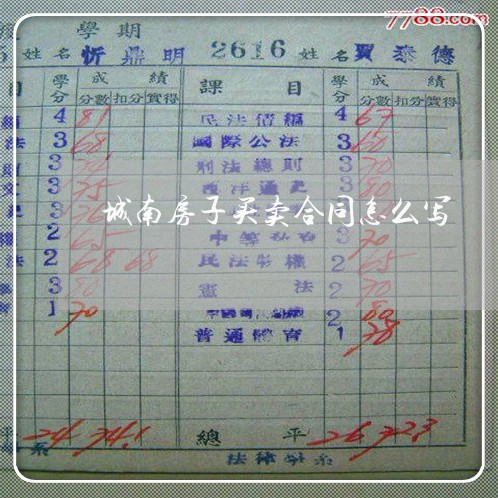 7788.com
學期
姓名 忻鼎明 2616 姓名 賈泰德
目 學分 成績 分數 扣分 實得 課目 學分 成績 分數 扣分 實得
4 81 民法債編 4 67
法 3 68 國際公法 3 60
3 刑法總則 3 70
3 75 西洋通史 3 80
城南房子买卖合同怎么写
2 65 3 70
法 2 68 68 民法物權 2 65
3 80 憲法 2 70
1 70 2 80
普通體育 1 78
平 24 74.1 總平 26 72.3
系 法律學系